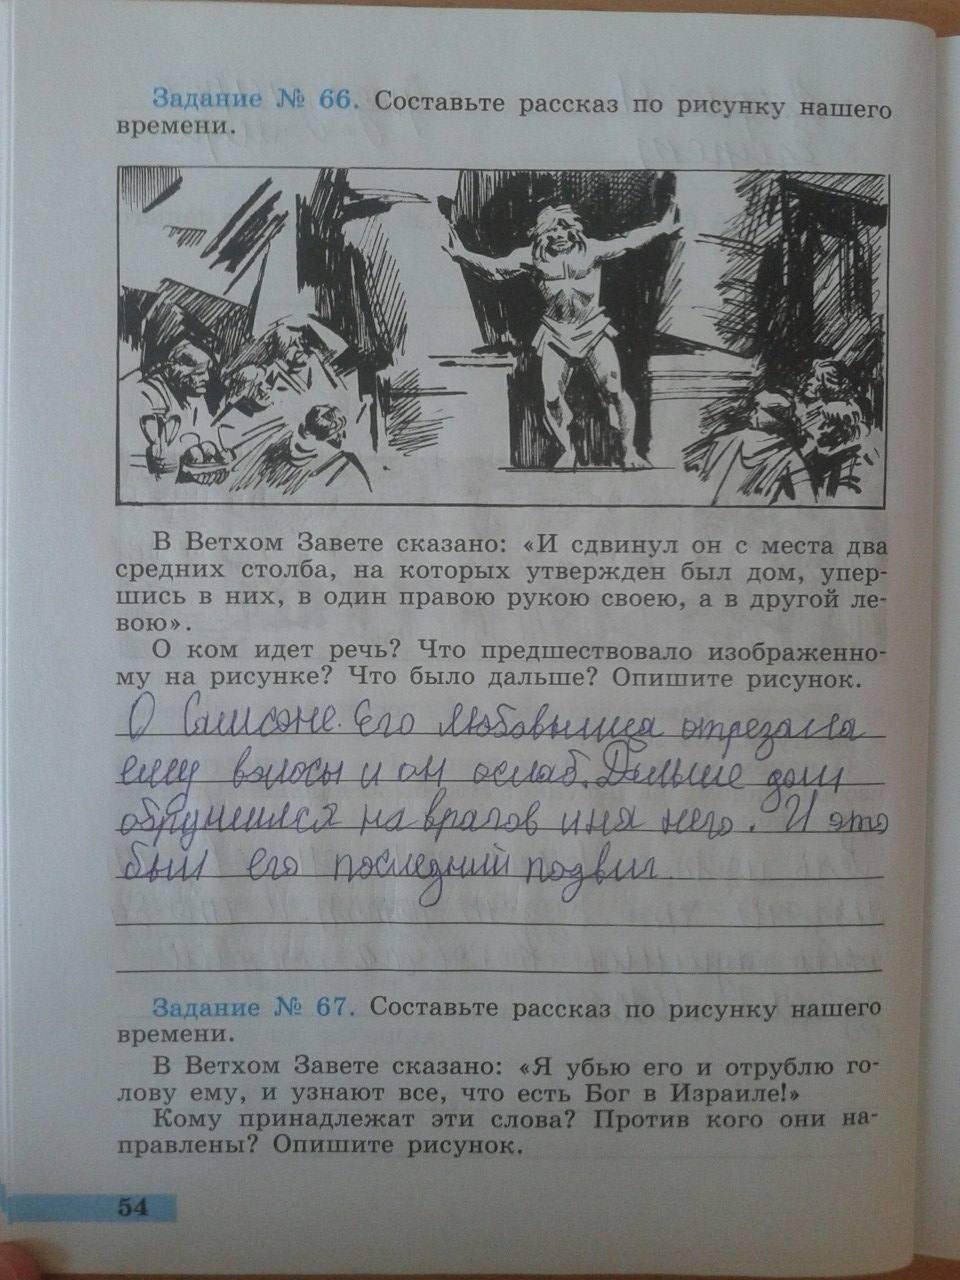 Задание № 66. Составьте рассказ по рисунку нашего
времени.
В Ветхом Завете сказано: «И сдвинул он с места два
средних столба, на которых утвержден был дом, упер-
шись в них, в один правою рукою своею, а в другой ле-
вою».
О ком идет речь? Что предшествовало изображенно-
му на рисунке? Что было дальше? Опишите рисунок.
О Самсоне. Его любовница отрезала
ему волосы и он ослаб. Дальше дом
обрушился на врагов и на него. И это
был его последний подвиг.
Задание № 67. Составьте рассказ по рисунку нашего
времени.
В Ветхом Завете сказано: «Я убью его и отрублю го-
лову ему, и узнают все, что есть Бог в Израиле!»
Кому принадлежат эти слова? Против кого они на-
правлены? Опишите рисунок.
54